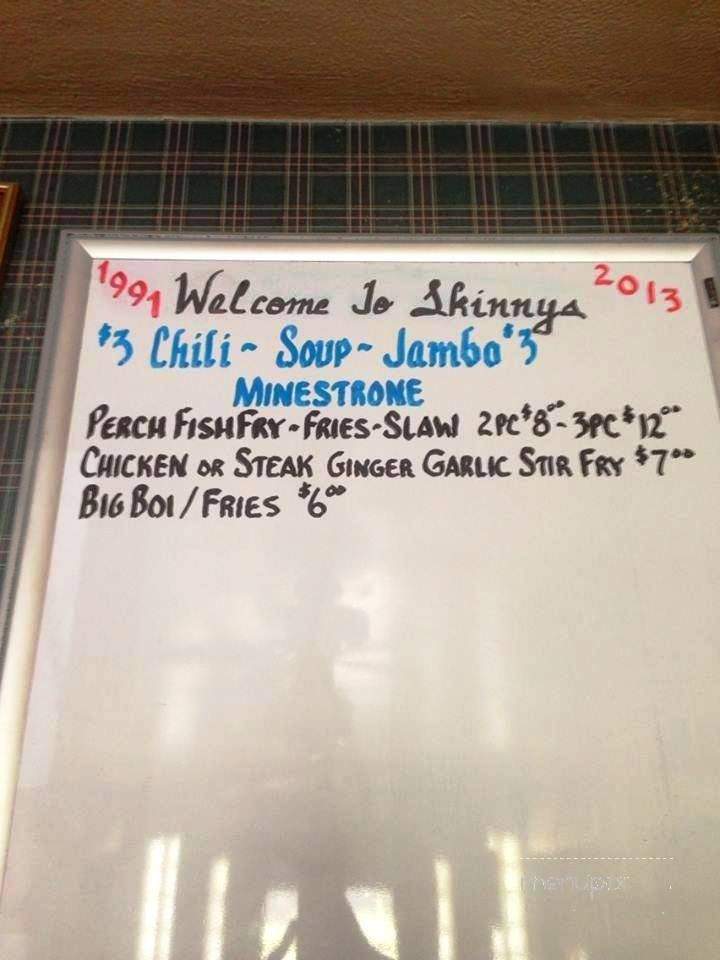 1991 Welcome To Skinnys 2013
$3 Chili ~ Soup ~ Jambo $3
MINESTRONE
PERCH FISH FRY - FRIES - SLAW 2PC $8.00 - 3PC $12.00
CHICKEN OR STEAK GINGER GARLIC STIR FRY $7.00
BIG BOI / FRIES $6.00
menupix